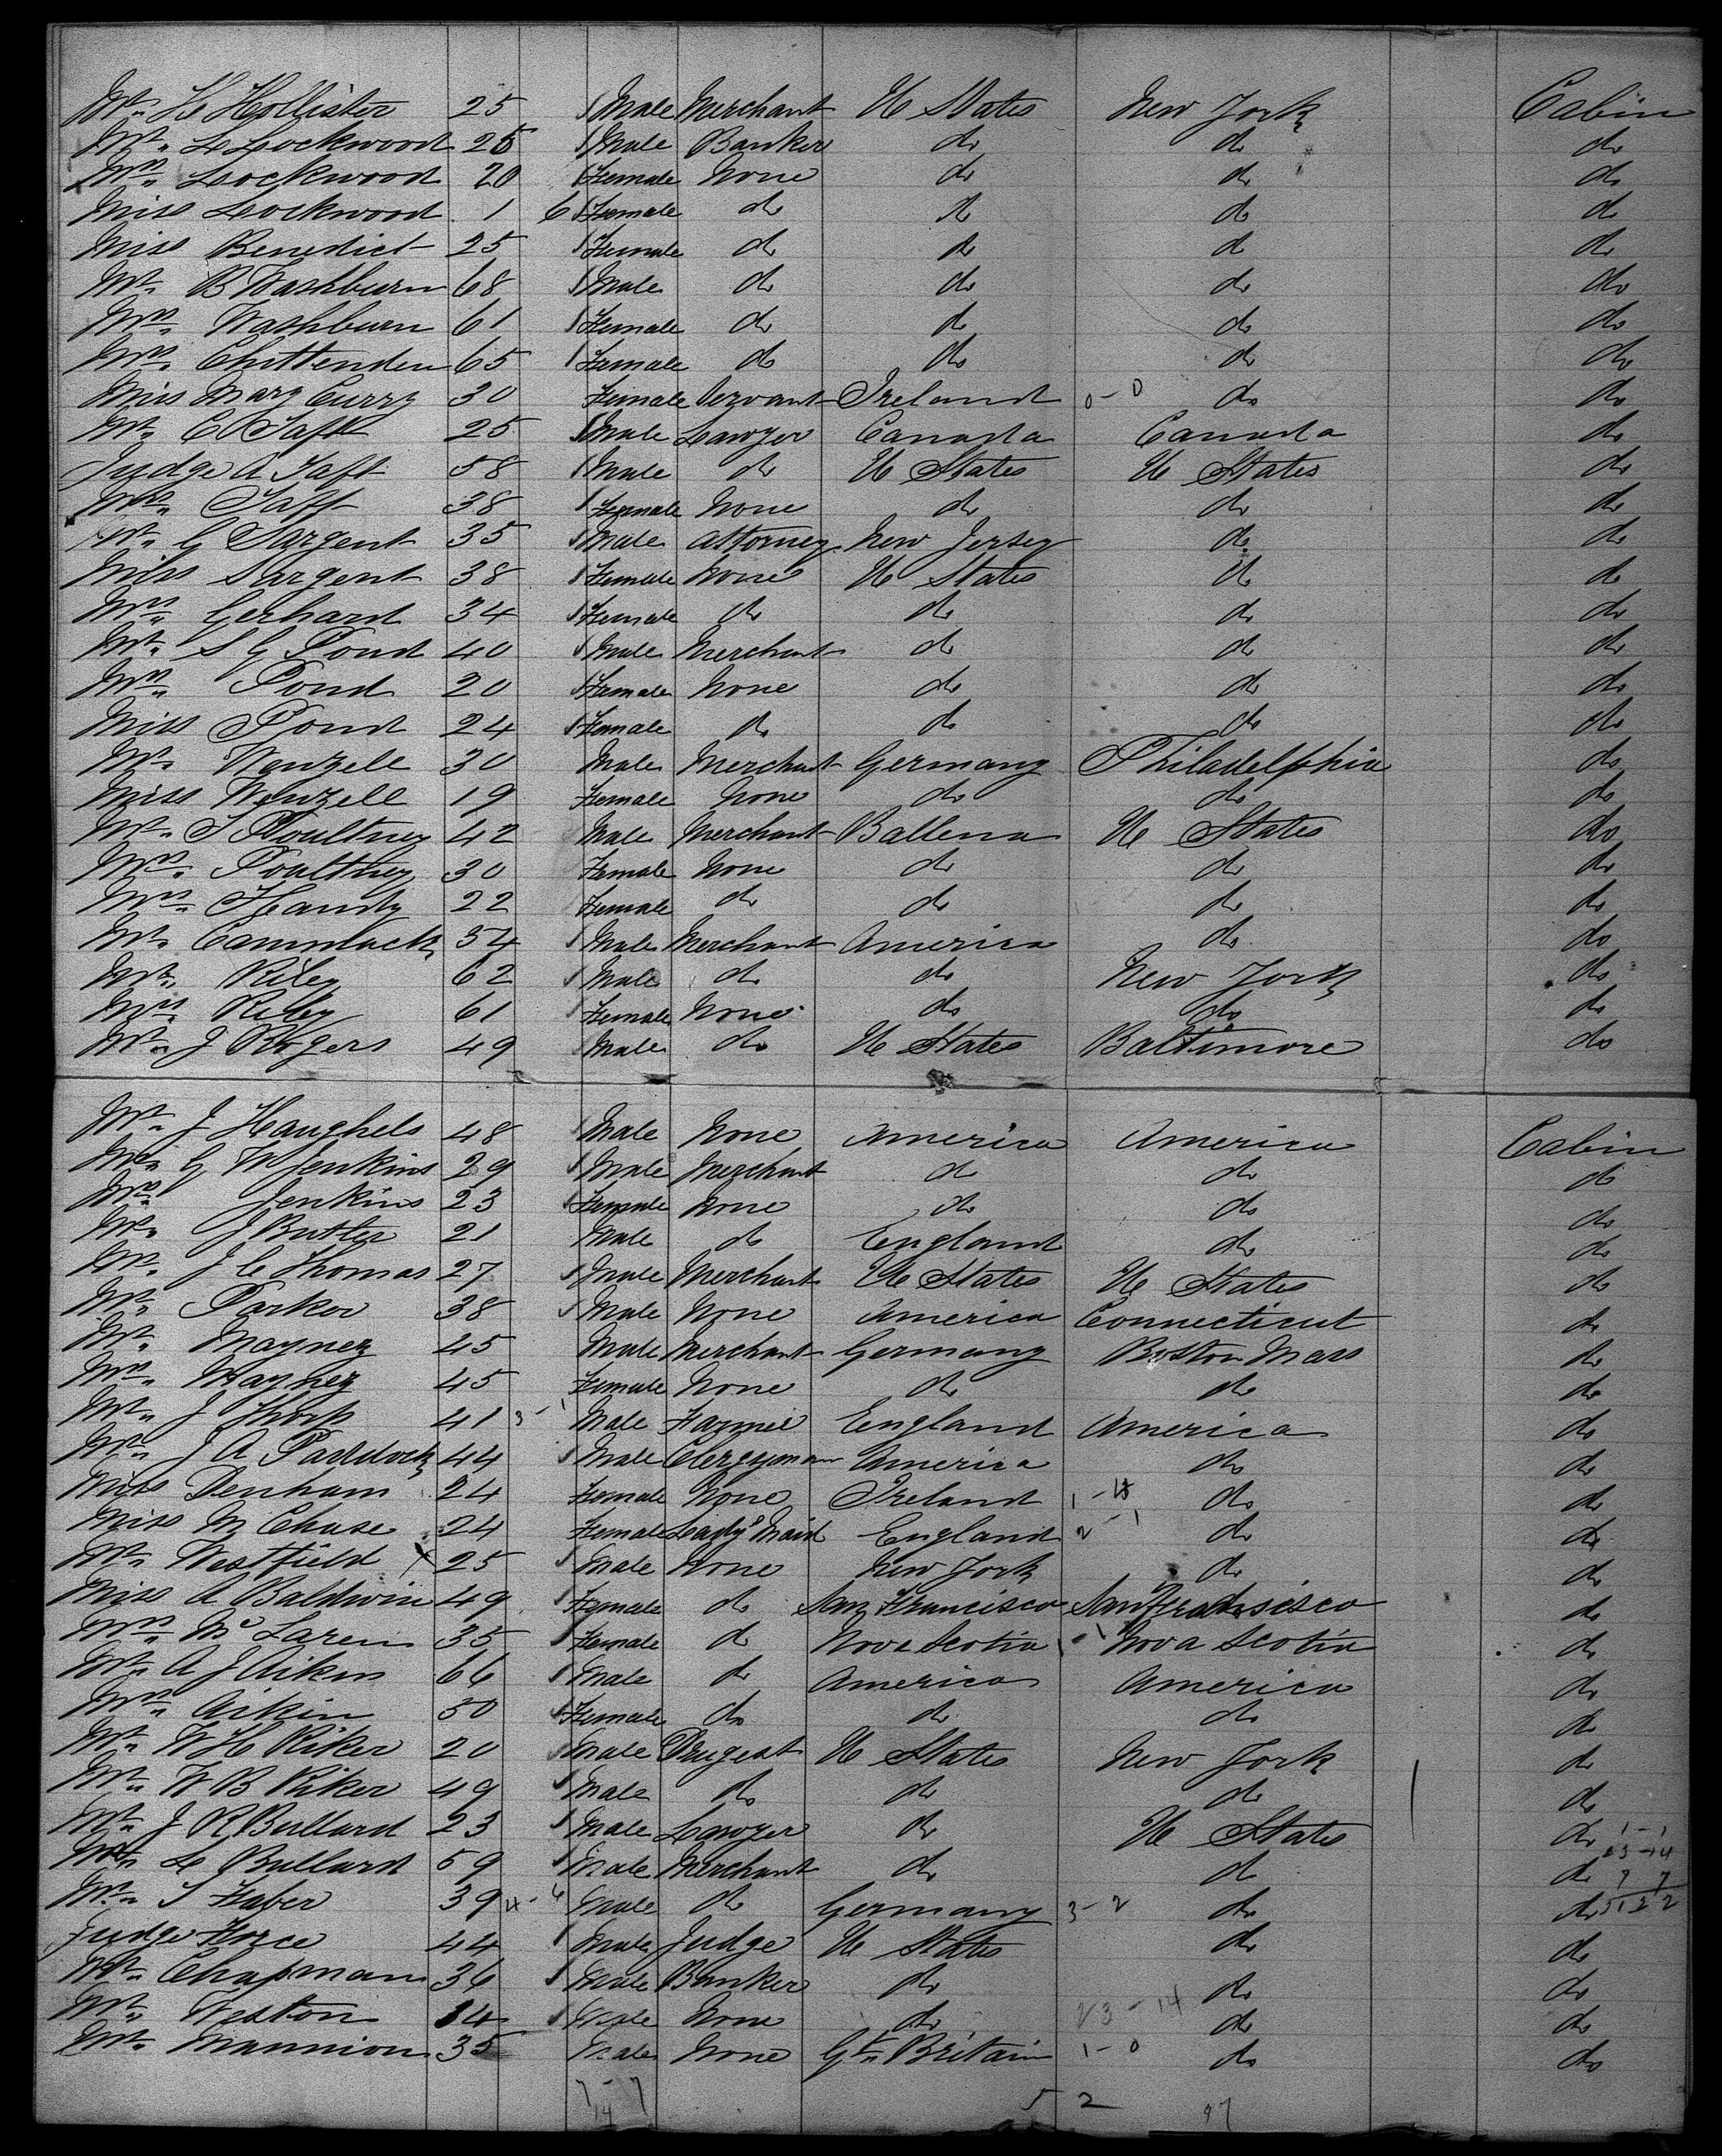 Mr. H Hollister 25 1 Male Merchant U States New York Cabin
Mr. L Lockwood 25 1 Male Banker do do do
Mrs. Lockwood 20 1 Female None do do do
Miss Lockwood 1 6 1 Female do do do do
Miss Benedict 25 1 Female do do do do
Mr. B Washburn 68 1 Male do do do do
Mrs. Washburn 61 1 Female do do do do
Mrs. Chittenden 65 1 Female do do do do
Miss Mary Curry 30 Female Servant Ireland 0-0 do do
Mr. C Taft 25 1 Male Lawyer Canada Canada do
Judge A Taft 58 1 Male do U States U States do
Mrs. Taft 38 1 Female None do do do
Mr. G Sargent 35 1 Male Attorney New Jersey do do
Miss Sargent 38 1 Female None U States do do
Mrs. Gerhard 34 1 Female do do do do
Mr. S G Pond 40 1 Male Merchant do do do
Mrs. Pond 20 1 Female None do do do
Miss Pond 24 1 Female do do do do
Mr. Wenzell 30 Male Merchant Germany Philadelphia do
Miss Wenzell 19 Female None do do do
Mr. T Poultney 42 Male Merchant Ballena U States do
Mrs. Poultney 30 Female None do do do
Mrs. Handy 22 Female do do do do
Mr. Cammlack 54 1 Male Merchant America do do
Mr. Riley 62 1 Male do do New York do
Mrs. Riley 61 1 Female None do do do
Mr. J Rogers 49 1 Male do U States Baltimore do
Mr. J Haughels 48 1 Male None America America Cabin
Mr. G W Jenkins 29 1 Male Merchant do do do
Mrs. Jenkins 23 1 Female None do do do
Mr. J Butler 21 Male do England do do
Mr. J C Thomas 27 1 Male Merchant U States U States do
Mr. Parker 38 1 Male None America Connecticut do
Mr. Mayney 45 Male Merchant Germany Boston Mass do
Mrs. Mayney 45 Female None do do do
Mr. J Thorp 41 3-1 Male Farmer England America do
Mr. J A Paddock 44 1 Male Clergyman America do do
Miss Denham 24 Female None Ireland do do
Miss M Chase 24 Female Lady's Maid England 2-1 do do
Mr. Westfield x 25 1 Male None New York do do
Miss A Baldwin 49 1 Female do San Francisco San Francisco do
Mrs. McLaren 35 1 Female do Nova Scotia Nova Scotia do
Mr. A J Aikin 66 1 Male do America America do
Mrs. Aikin 50 1 Female do do do do
Mr. W H Riker 20 1 Male Drugest U States New York do
Mr. W B Riker 49 1 Male do do do do
Mr. J R Bullard 23 1 Male Lawyer do U States do 1-1
Mr. L Bullard 59 1 Male Merchant do do do 23-14
Mr. S Faber 39 4-6 Male do Germany 3-2 do do 7 7
Judge Force 44 1 Male Judge U States do do
Mr. Chapman 36 1 Male Banker do do do
Mr. Weston 14 1 Male None do 23-14 do do
Mr. Mannion 35 Male None Gt. Britain 1-0 do do
7-7 5 2
14